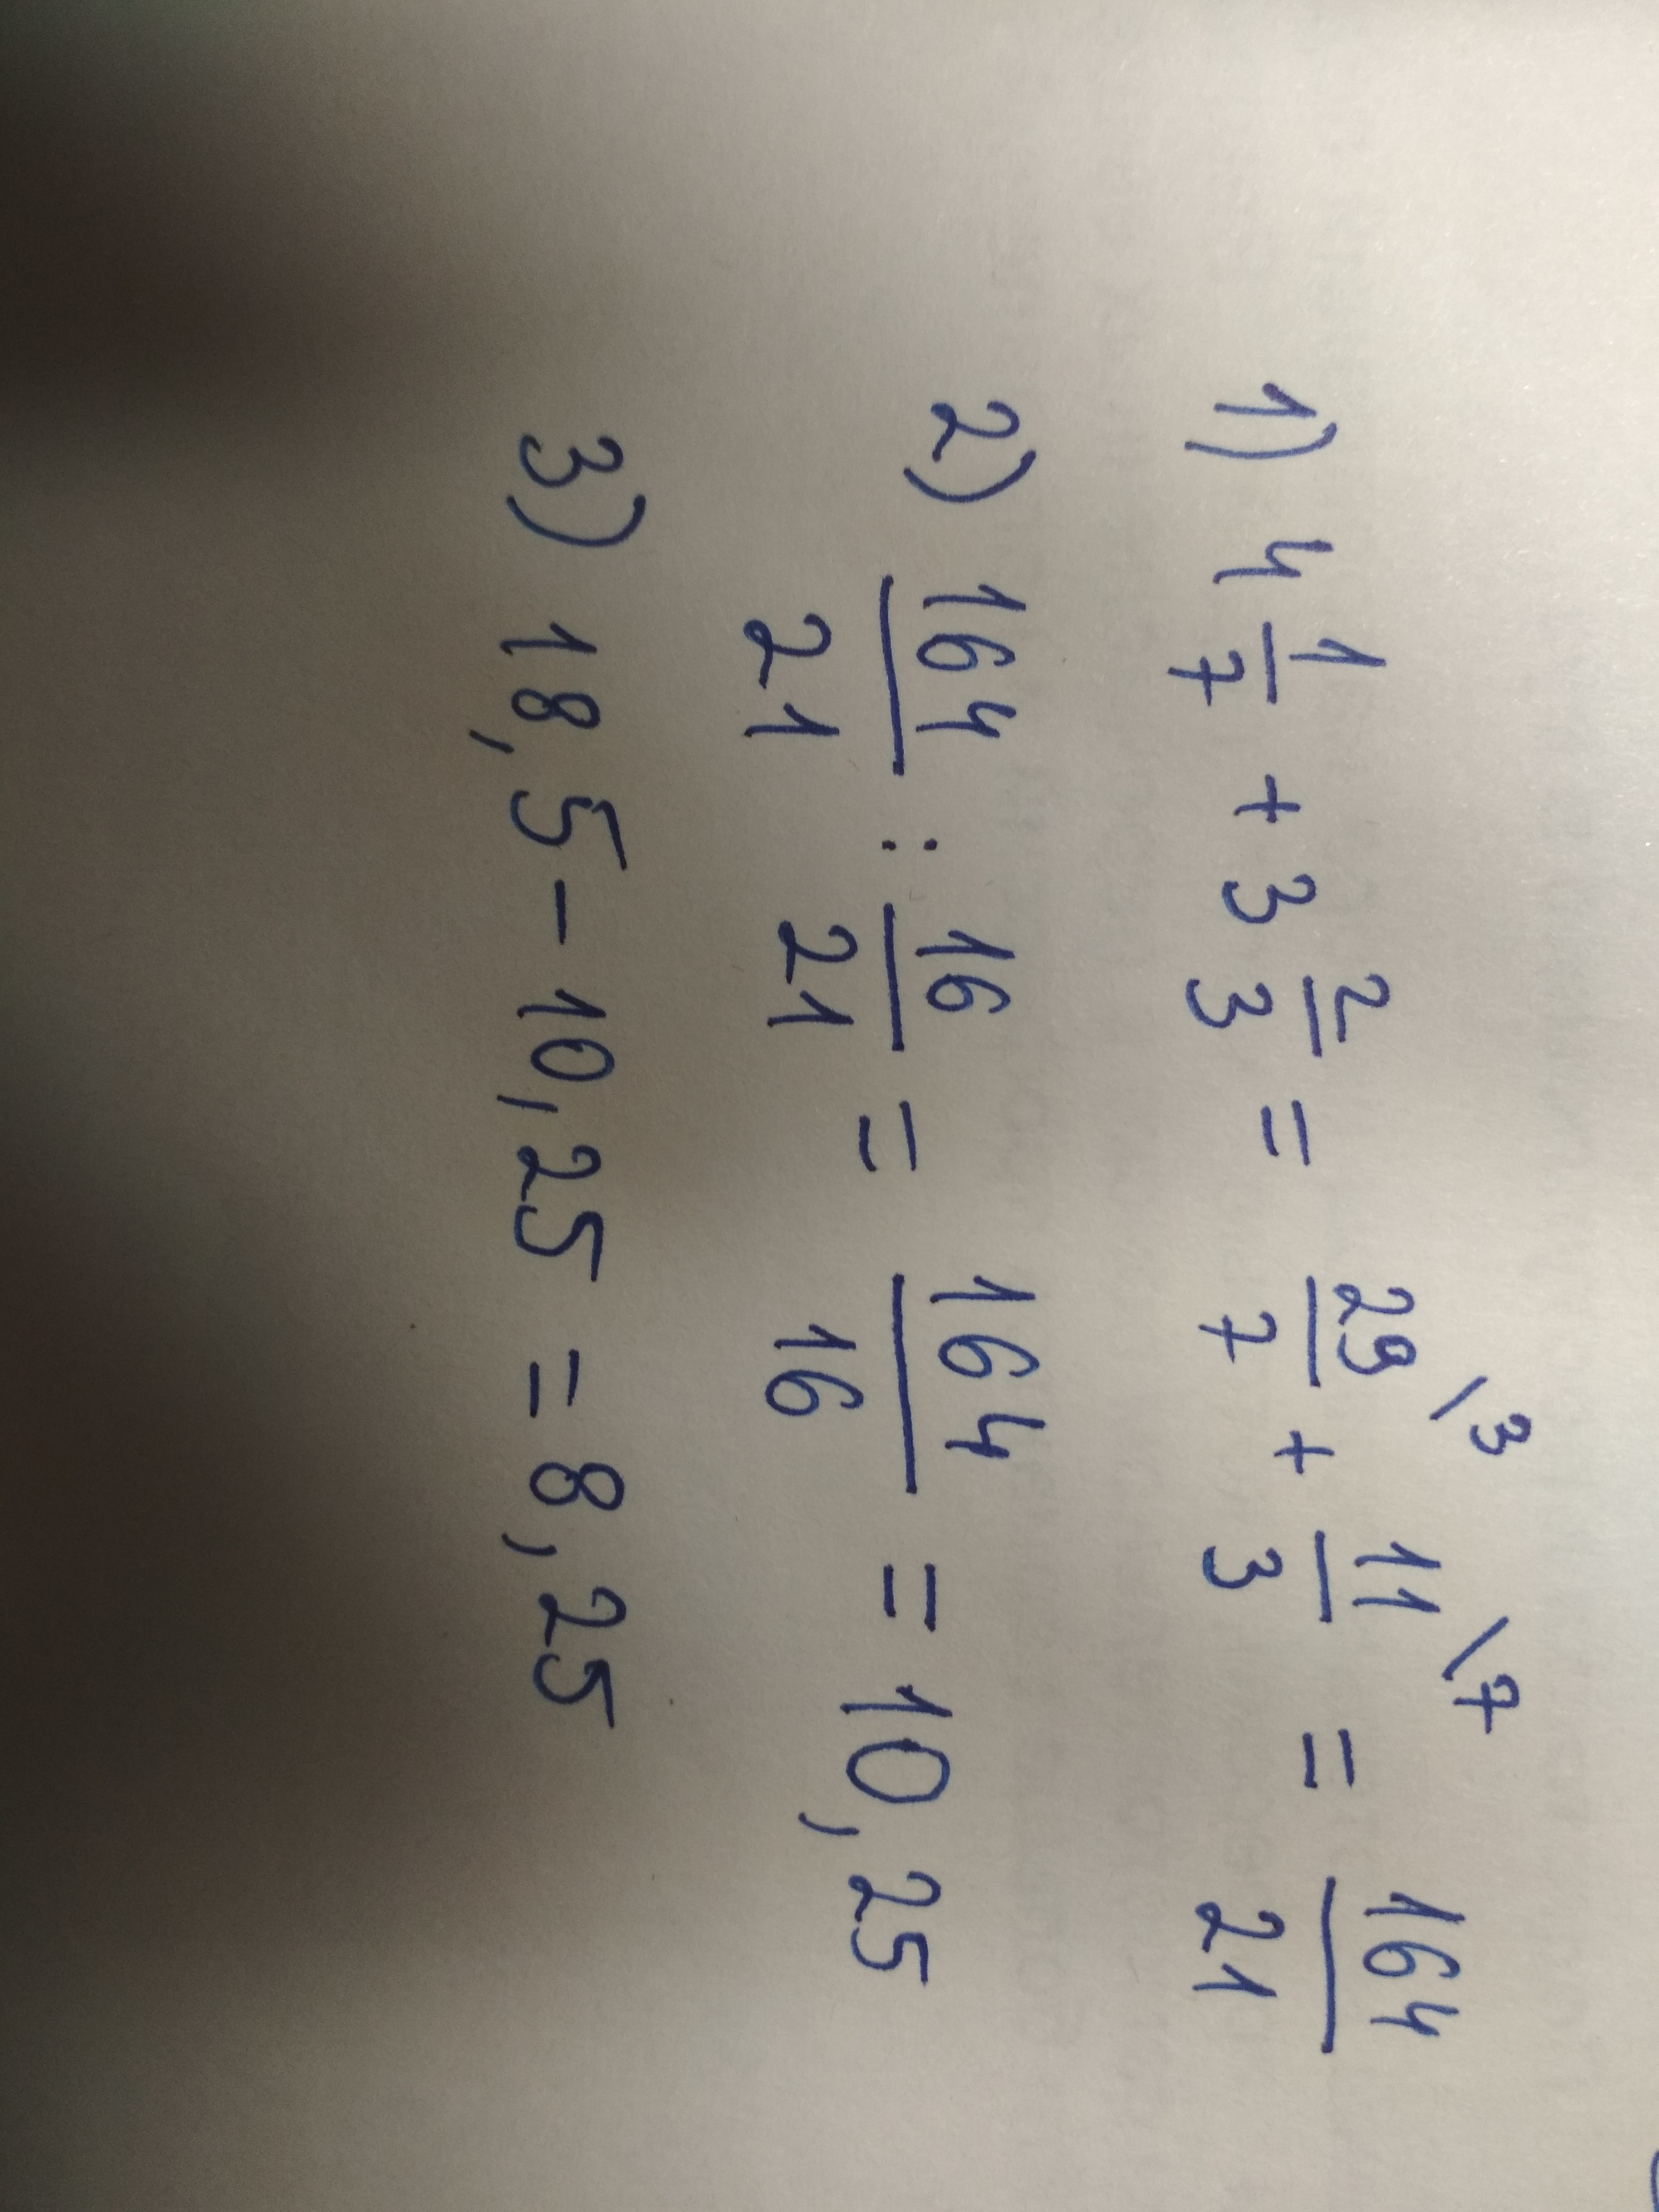 1) 4 1/7 + 3 2/3 = 29/7 \3 + 11/3 \7 = 164/21
2) 164/21 : 16/21 = 164/16 = 10,25
3) 18,5 - 10,25 = 8,25